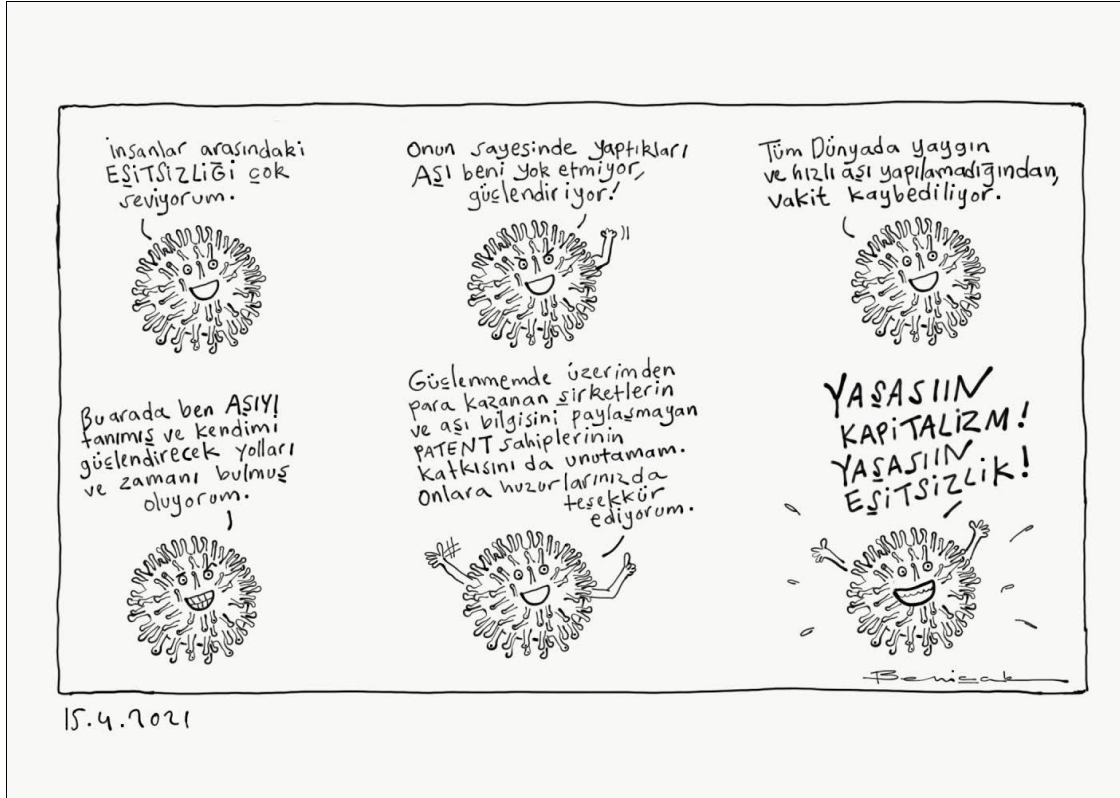 İnsanlar arasındaki
EŞİTSİZLİĞİ çok
seviyorum.
Onun sayesinde yaptıkları
AŞI beni yok etmiyor,
güçlendiriyor!
Tüm Dünyada yaygın
ve hızlı aşı yapılamadığından,
vakit kaybediliyor.
Bu arada ben AŞIYI
tanımış ve kendimi
güçlendirecek yolları
ve zamanı bulmuş
oluyorum.
Güçlenmemde üzerimden
para kazanan şirketlerin
ve aşı bilgisini paylaşmayan
PATENT sahiplerinin
katkısını da unutamam.
Onlara huzurlarınızda
teşekkür
ediyorum.
YAŞASIIN
KAPİTALİZM!
YAŞASIIN
EŞİTSİZLİK!
Beniçak
15.4.2021